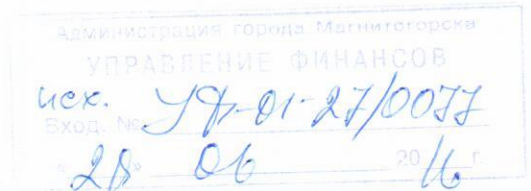 Администрация города Магнитогорска
УПРАВЛЕНИЕ ФИНАНСОВ
исх.
Вход. № УФ-01-27/0077
"28" 06 2016 г.